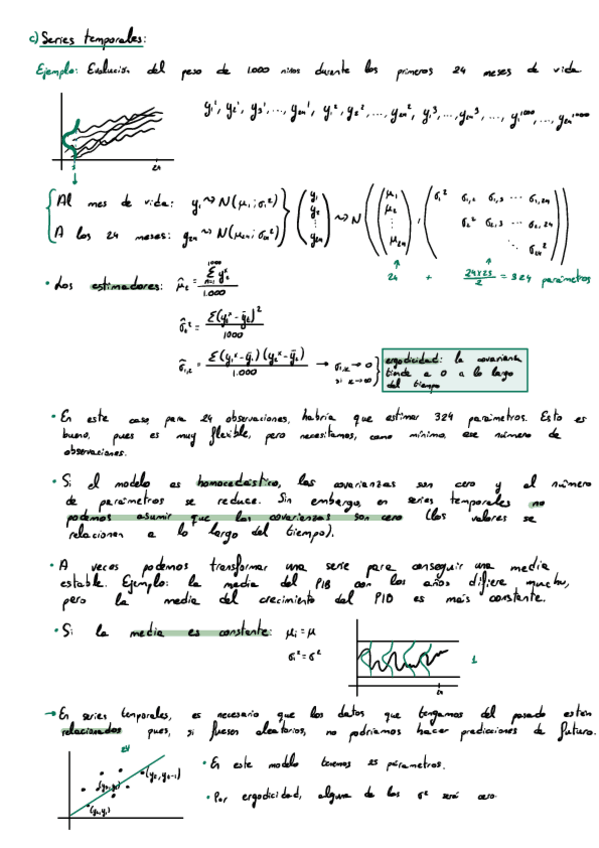 c) Series temporales:
Ejemplo: Evolución del peso de 1.000 niños durante los primeros 24 meses de vida
y₁¹, y₂¹, y₃¹, ..., y₂₄¹, y₁², y₂², ..., y₂₄², y₁³, ..., y₂₄³, ..., y₁¹⁰⁰⁰, ..., y₂₄¹⁰⁰⁰
24
Al mes de vida: y₁ ~> N(μ₁; σ₁²)
A los 24 meses: y₂₄ ~> N(μ₂₄; σ₂₄²)
(y₁ y₂ ⋮ y₂₄) ~> N((μ₁ μ₂ ⋮ μ₂₄), (σ₁² σ₁,₂ σ₁,₃ ... σ₁,₂₄
σ₂² σ₂,₃ ... σ₂,₂₄
⋱ σ₂₄²))
24 + 24x25/2 = 324 parámetros
• Los estimadores:
1.000
1000
1.000
ergodicidad: la covarianza
tiende a 0 a lo largo
del tiempo
• En este caso, para 24 observaciones, habría que estimar 324 parámetros. Esto es
bueno, pues es muy flexible, pero necesitamos, como mínimo, ese número de
observaciones.
• Si el modelo es homocedástico, las covarianzas son cero y el número
de parámetros se reduce. Sin embargo, en series temporales no
podemos asumir que las covarianzas son cero (los valores se
relacionan a lo largo del tiempo).
• A veces podemos transformar una serie para conseguir una media
estable. Ejemplo: la media del PIB con los años difiere mucho,
pero la media del crecimiento del PIB es más constante.
• Si la media es constante: μᵢ = μ
σᵢ² = σ²
→ En series temporales, es necesario que los datos que tengamos del pasado estén
relacionados pues, si fuesen aleatorios, no podríamos hacer predicciones de futuro.
• En este modelo tenemos 25 parámetros.
• Por ergodicidad, alguna de las σ² será cero